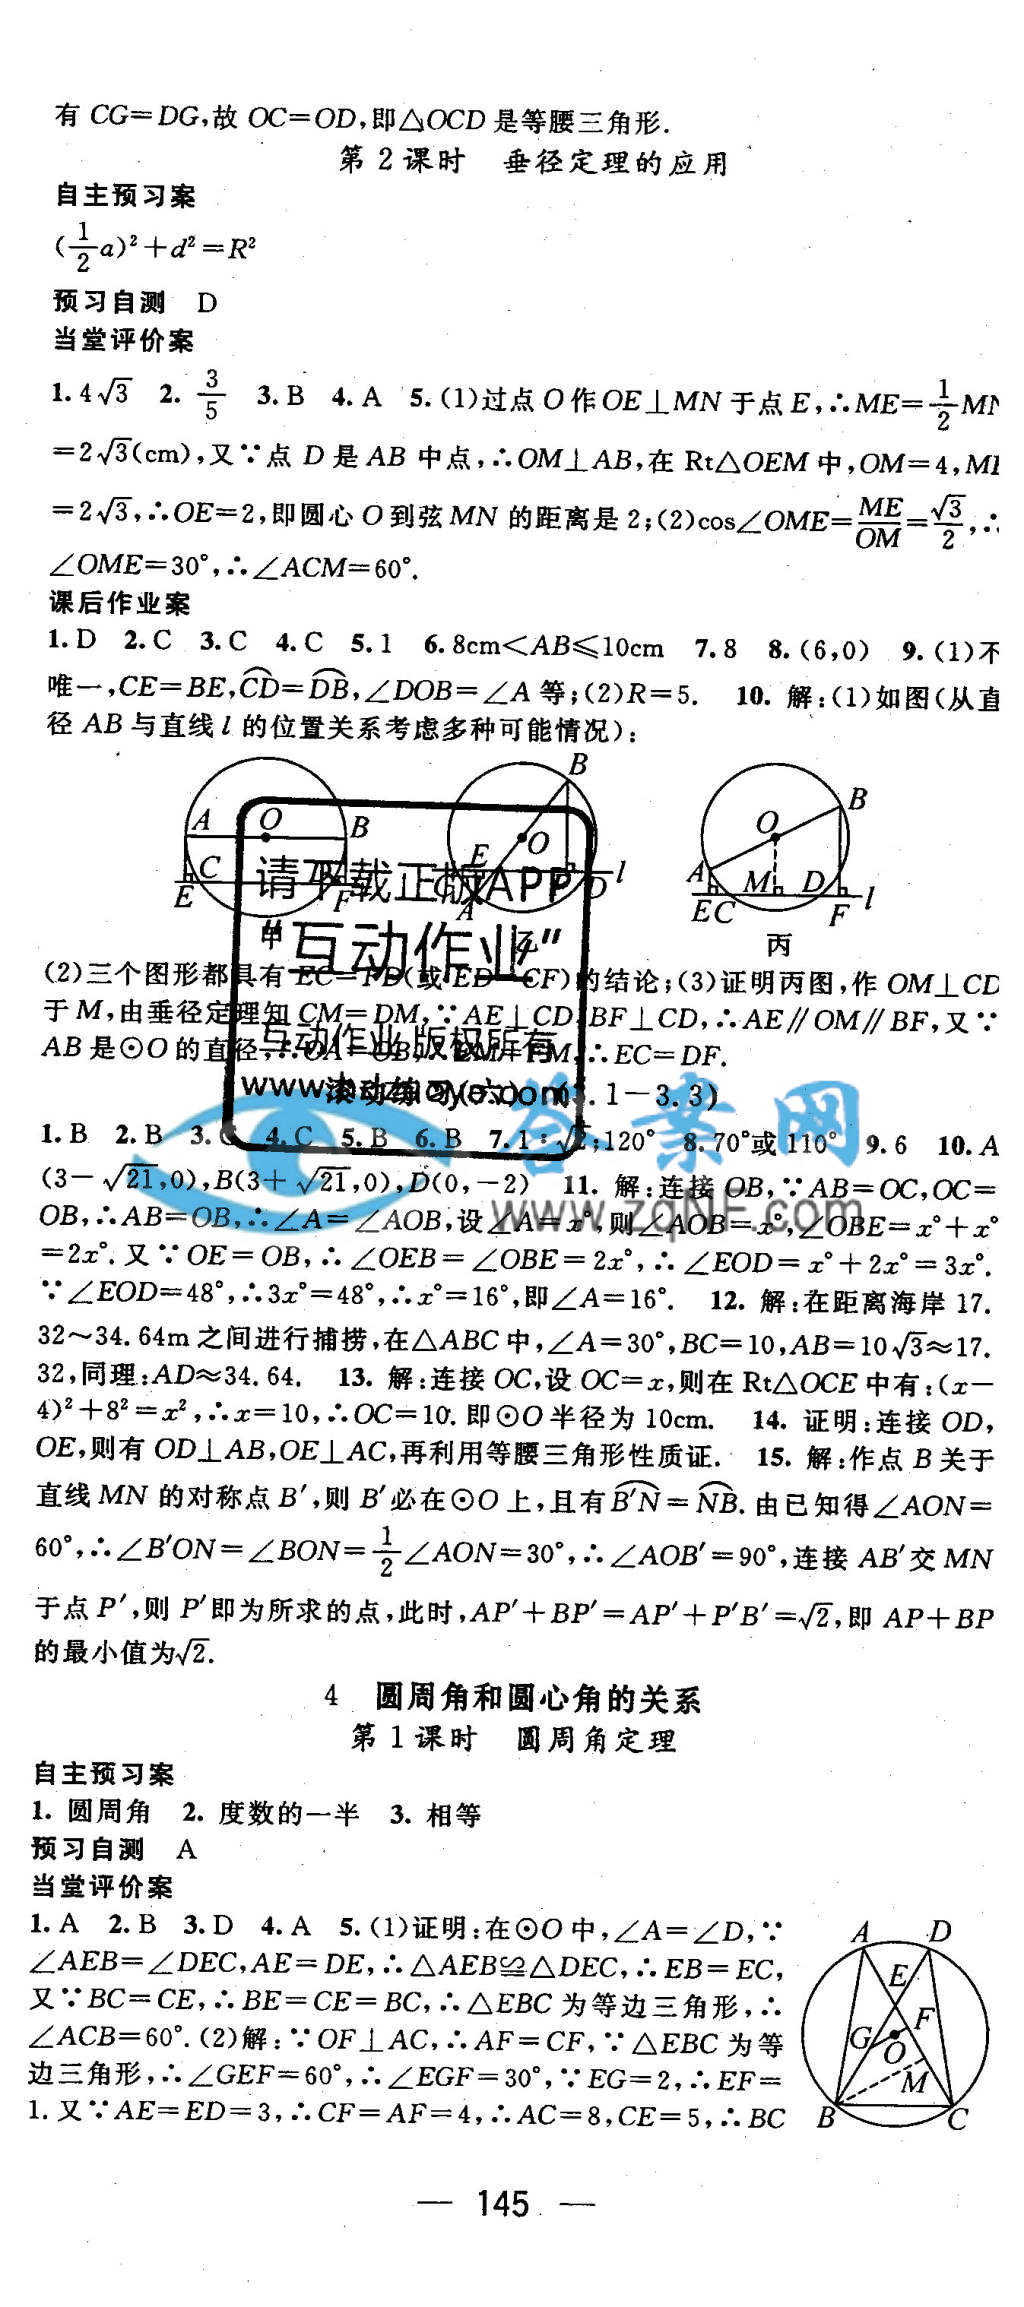 有 CG=DG,故 OC=OD,即△OCD 是等腰三角形.
第 2 课时 垂径定理的应用
自主预习案
(1/2 a)²+d²=R²
预习自测 D
当堂评价案
1. 4√3 2. 3/5 3. B 4. A 5. (1)过点 O 作 OE⊥MN 于点 E,∴ME=1/2 MN
=2√3(cm),又∵点 D 是 AB 中点,∴OM⊥AB,在 Rt△OEM 中,OM=4,ME
=2√3,∴OE=2,即圆心 O 到弦 MN 的距离是 2;(2)cos∠OME=ME/OM=√3/2,∴
∠OME=30°,∴∠ACM=60°.
课后作业案
1. D 2. C 3. C 4. C 5. 1 6. 8cm<AB≤10cm 7. 8 8. (6,0) 9. (1)不
唯一,CE=BE,C͡D=D͡B,∠DOB=∠A 等;(2)R=5. 10. 解:(1)如图(从直
径 AB 与直线 l 的位置关系考虑多种可能情况):
A O B C E F
B O E D l A
O B A M D l E C F
甲
乙
丙
请下载正版APP
“互动作业”
互动作业 版权所有
(2)三个图形都具有 EC=FD(或 ED=CF)的结论;(3)证明丙图,作 OM⊥CD
于 M,由垂径定理知 CM=DM,∵AE⊥CD,BF⊥CD,∴AE∥OM∥BF,又∵
AB 是⊙O 的直径,∴OA=OB,∴EM=FM,∴EC=DF.
滚动练习(六) (3.1-3.3)
答案网
www.zqNF.com
1. B 2. B 3. C 4. C 5. B 6. B 7. 1∶√2;120° 8. 70°或 110° 9. 6 10. A
(3-√21,0),B(3+√21,0),D(0,-2) 11. 解:连接 OB,∵AB=OC,OC=
OB,∴AB=OB,∴∠A=∠AOB,设∠A=x°,则∠AOB=x°,∠OBE=x°+x°
=2x°. 又∵OE=OB,∴∠OEB=∠OBE=2x°,∴∠EOD=x°+2x°=3x°.
∵∠EOD=48°,∴3x°=48°,∴x°=16°,即∠A=16°. 12. 解:在距离海岸 17.
32~34. 64m 之间进行捕捞,在△ABC 中,∠A=30°,BC=10,AB=10√3≈17.
32,同理:AD≈34. 64. 13. 解:连接 OC,设 OC=x,则在 Rt△OCE 中有:(x-
4)²+8²=x²,∴x=10,∴OC=10. 即⊙O 半径为 10cm. 14. 证明:连接 OD,
OE,则有 OD⊥AB,OE⊥AC,再利用等腰三角形性质证. 15. 解:作点 B 关于
直线 MN 的对称点 B′,则 B′必在⊙O 上,且有B′͡N=N͡B. 由已知得∠AON=
60°,∴∠B′ON=∠BON=1/2∠AON=30°,∴∠AOB′=90°,连接 AB′交 MN
于点 P′,则 P′即为所求的点,此时,AP′+BP′=AP′+P′B′=√2,即 AP+BP
的最小值为√2.
4 圆周角和圆心角的关系
第 1 课时 圆周角定理
自主预习案
1. 圆周角 2. 度数的一半 3. 相等
预习自测 A
当堂评价案
1. A 2. B 3. D 4. A 5. (1)证明:在⊙O 中,∠A=∠D,∵
∠AEB=∠DEC,AE=DE,∴△AEB≌△DEC,∴EB=EC,
又∵BC=CE,∴BE=CE=BC,∴△EBC 为等边三角形,∴
∠ACB=60°. (2)解:∵OF⊥AC,∴AF=CF,∵△EBC 为等
边三角形,∴∠GEF=60°,∴∠EGF=30°,∵EG=2,∴EF=
1. 又∵AE=ED=3,∴CF=AF=4,∴AC=8,CE=5,∴BC
A D E F G O M B C
— 145 —